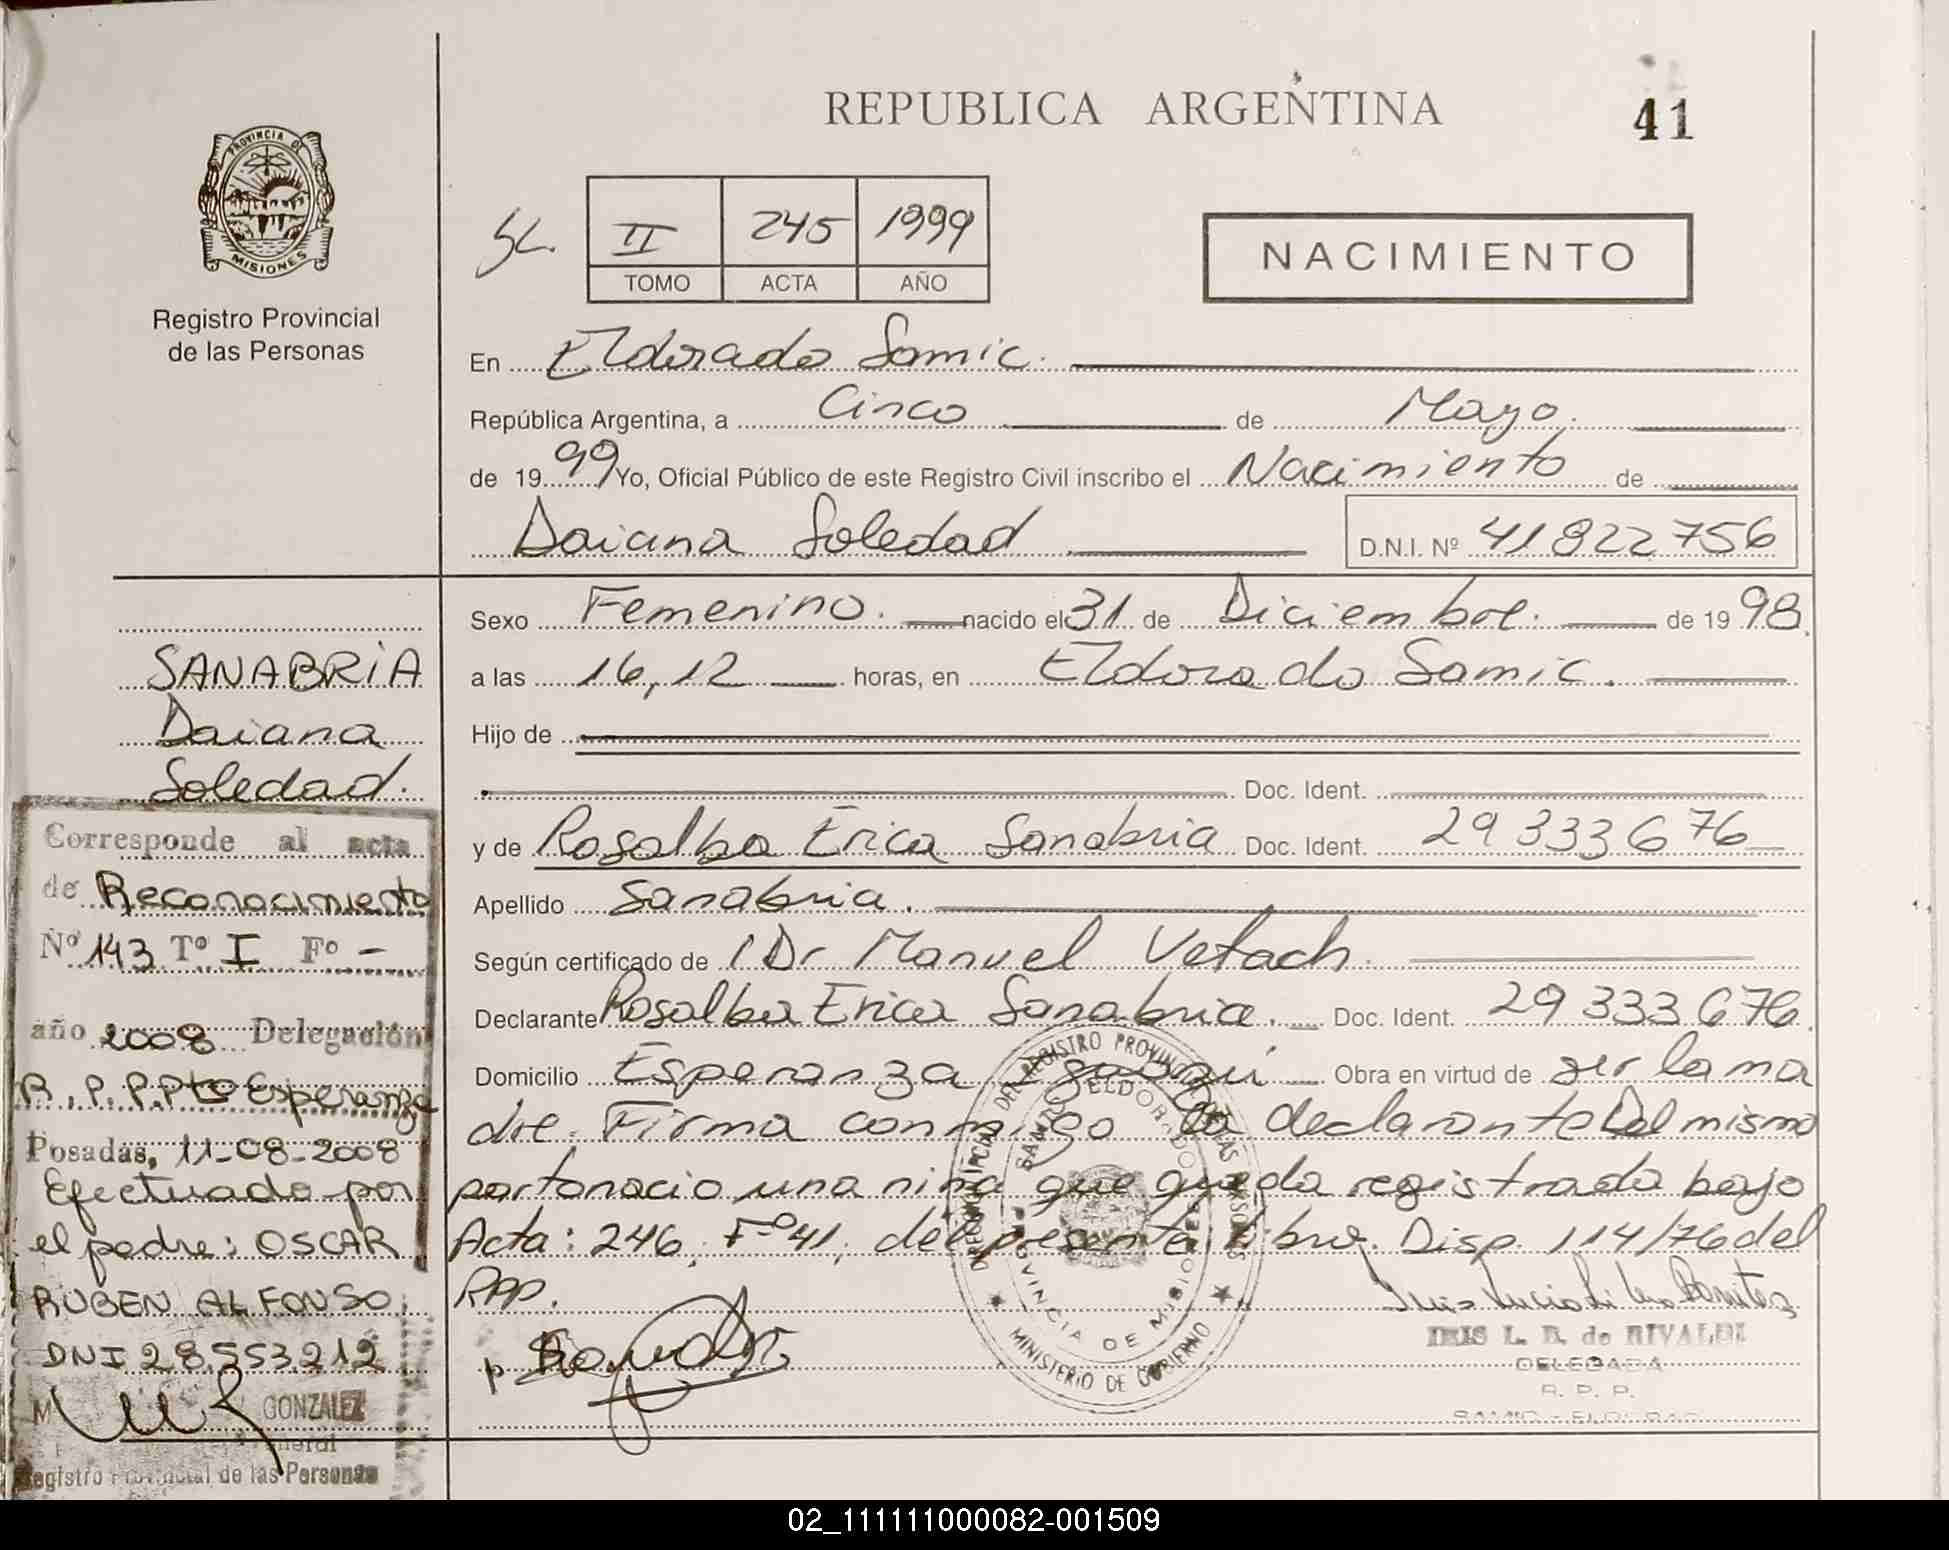 REPUBLICA ARGENTINA
41
PROVINCIA DE
MISIONES
Registro Provincial
de las Personas
SC.
II 245 1999
TOMO ACTA AÑO
NACIMIENTO
En Eldorado Samic.
República Argentina, a Cinco de Mayo.
de 1999 Yo, Oficial Público de este Registro Civil inscribo el Nacimiento de
Daiana Soledad D.N.I. Nº 41822756
Sexo Femenino. nacido el 31 de Diciembre. de 1998.
a las 16,12 horas, en Eldorado Samic.
Hijo de
Doc. Ident.
y de Rosalba Erica Sanabria Doc. Ident. 29333676
Apellido Sanabria.
Según certificado de Dr Manuel Vetach.
Declarante Rosalba Erica Sanabria. Doc. Ident. 29333676.
Domicilio Esperanza Iguazú Obra en virtud de ser la ma
dre. Firma conmigo la declarante Del mismo
parto nacio una niña que queda registrada bajo
Acta: 246, Fº 41, del presente libro. Disp. 114/76 del
RPP.
SANABRIA
Daiana
Soledad.
Corresponde al acta
de Reconocimiento
Nº 143 Tº I Fº -
año 2008 Delegación
R.P.P. Pto Esperanza
Posadas, 11-08-2008
Efectuado por
el padre: OSCAR
RUBEN ALFONSO.
DNI 28.553.212
GONZALEZ
Registro Provincial de las Personas
DIRECCION PROVINCIAL DEL REGISTRO PROVINCIAL DE LAS PERSONAS
SAMIC ELDORADO
PROVINCIA DE MISIONES
MINISTERIO DE GOBIERNO
IRIS L. B. de RIVALDI
DELEGADA
R. P. P.
SAMIC - ELDORADO
02_111111000082-001509